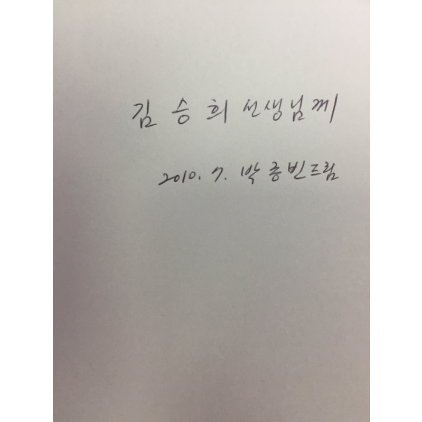 김 승 희 선생님께
2010. 7. 박 종 빈 드림